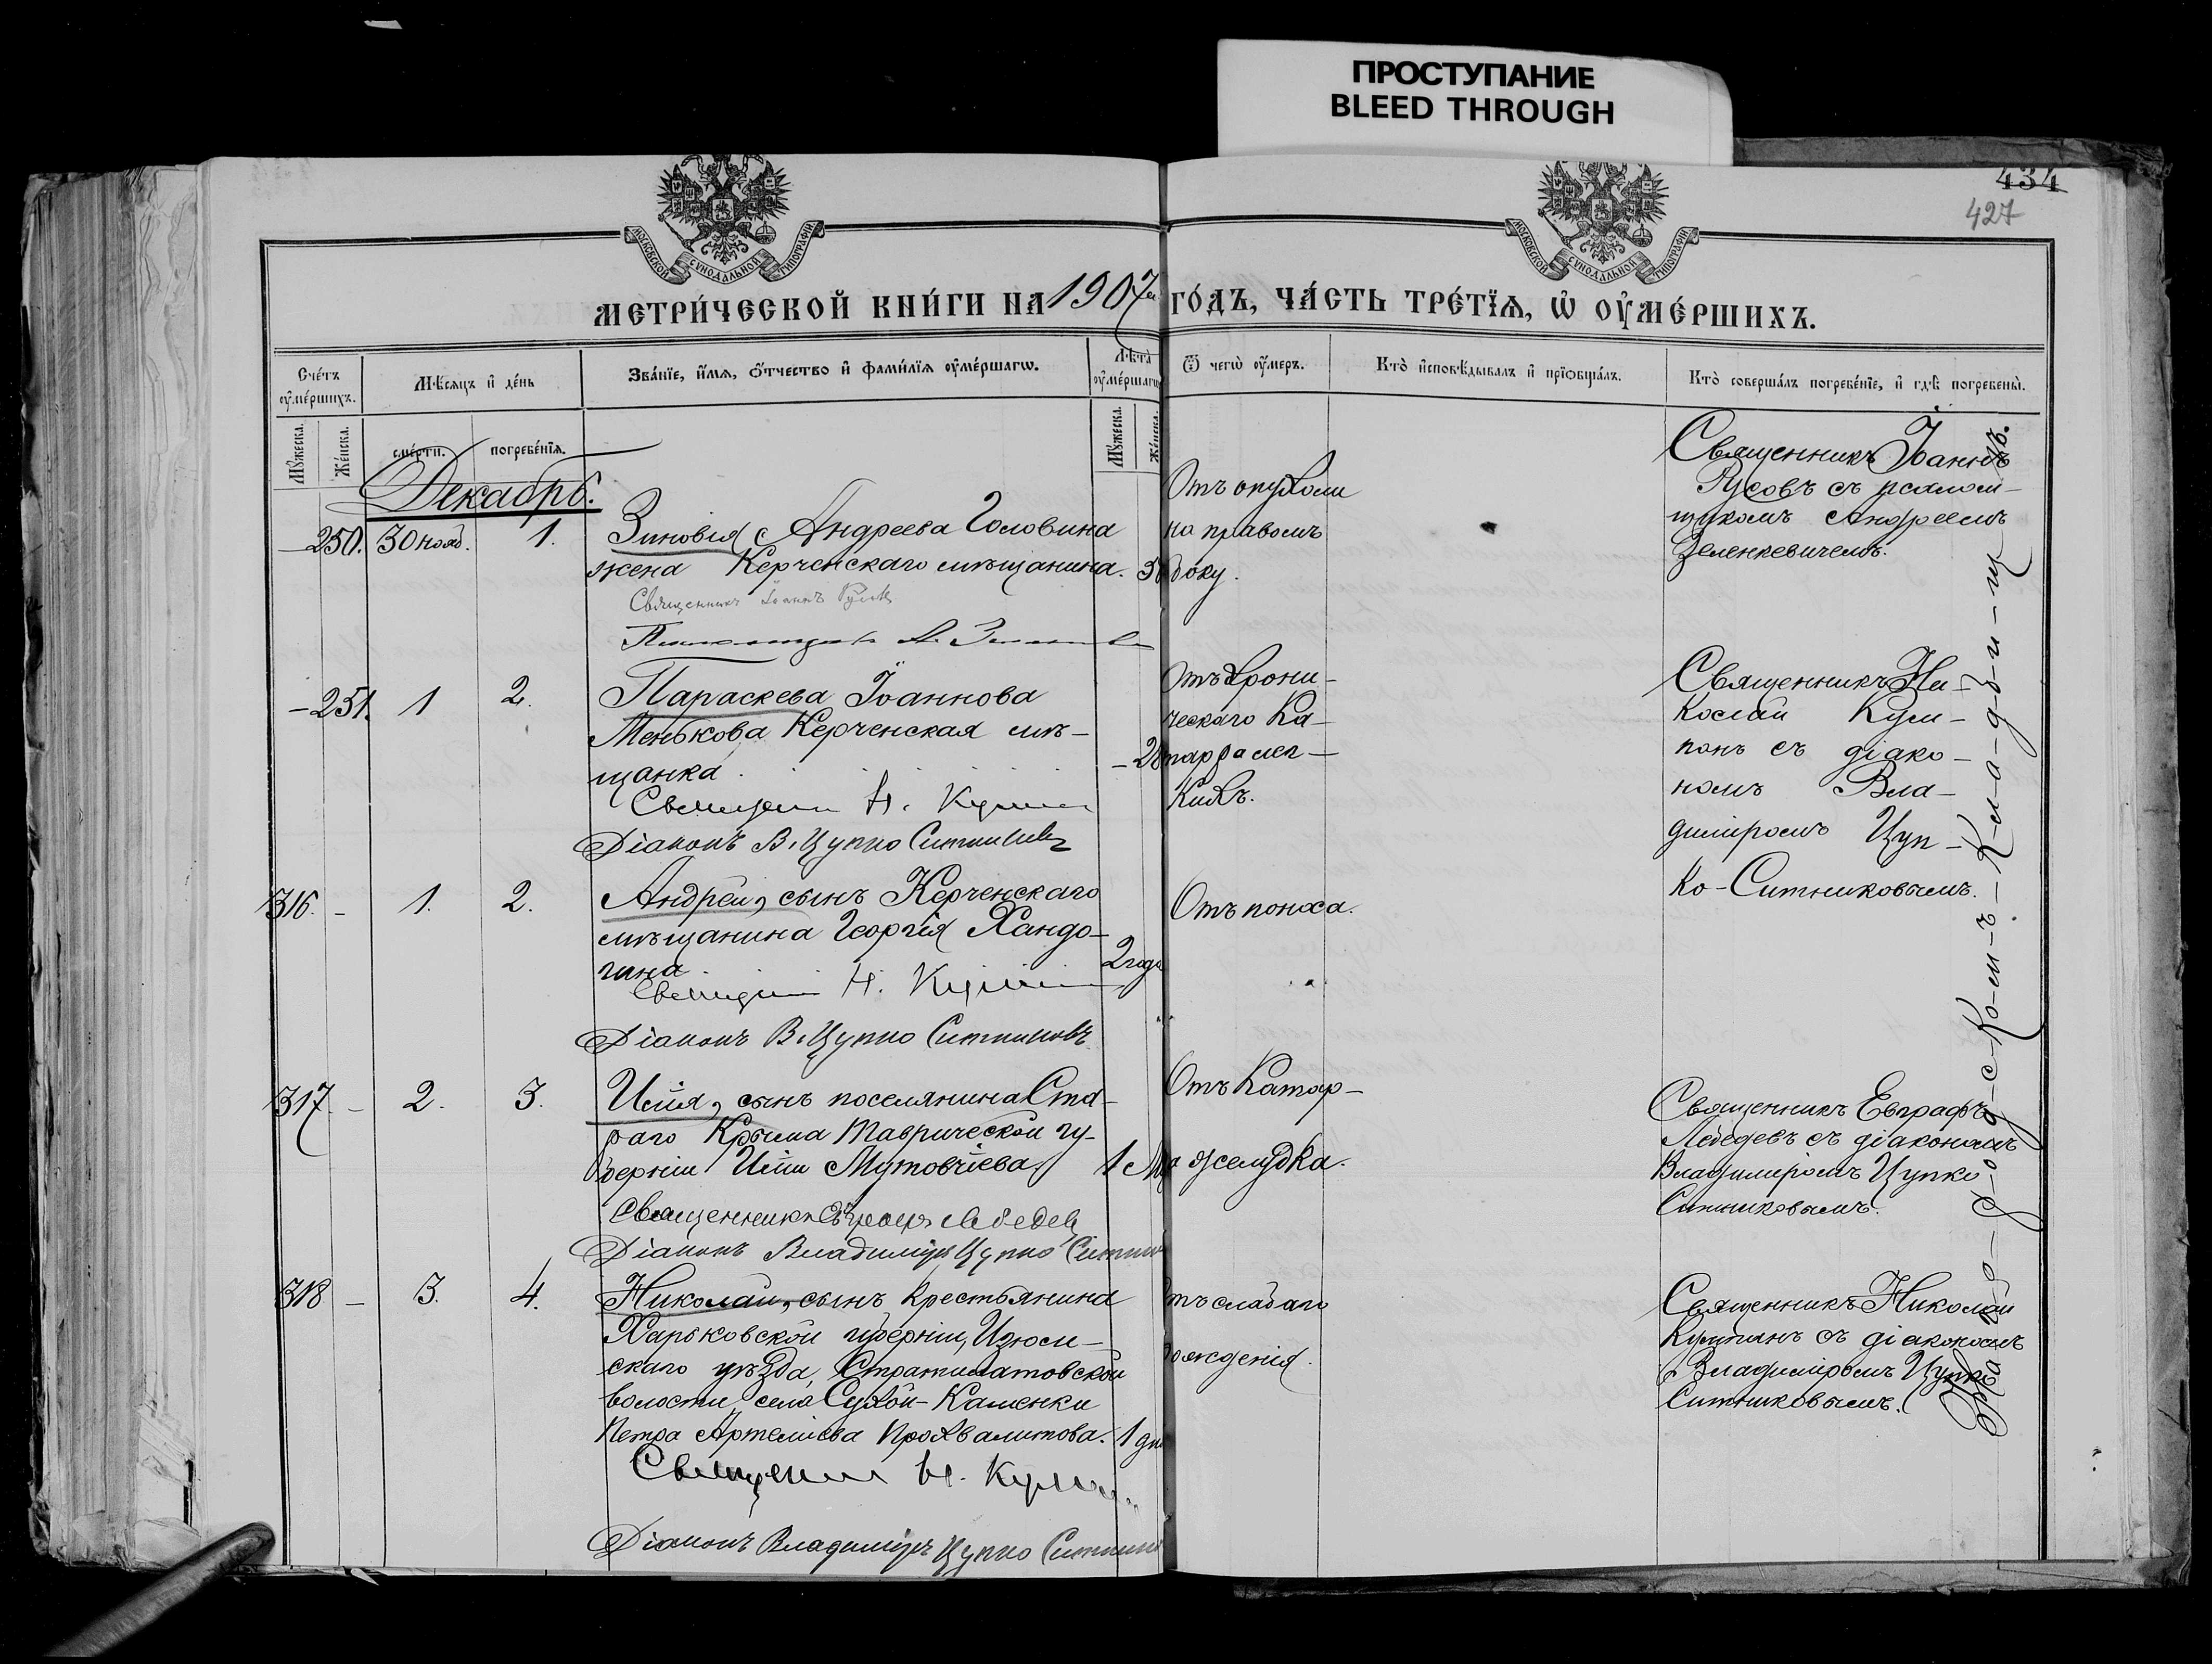 ПРОСТУПАНИЕ
BLEED THROUGH
434
427
МОСКОВСКОЙ СѴНОДАЛЬНОЙ ТИПОГРАФІИ
МОСКОВСКОЙ СѴНОДАЛЬНОЙ ТИПОГРАФІИ
МЕТРИ́ЧЕСКОЙ КНИ́ГИ НА 1907 ГО́ДЪ, ЧА́СТЬ ТРЕ́ТЇѦ, Ѡ҆ ОУ҆МЕ́РШИХЪ.
Сче́тъ оу҆ме́ршихъ.
Мѣ́сяцъ и҆ де́нь
Зва́нїе, и҆́мѧ, ѻ҆́тчество и҆ фами́лїѧ оу҆ме́ршагѡ.
Лѣ́та оу҆ме́ршагѡ
Ѿ чегѡ̀ оу҆́меръ.
Кто̀ и҆сповѣ́дывалъ и҆ прїѡбща́лъ.
Кто̀ соверша́лъ погребе́нїе, и҆ гдѣ̀ погребены̀.
Мꙋ́жеска. Же́нска.
сме́рти. погребе́нїѧ.
Мꙋ́жеска. Же́нска.
Декабрь.
– 250. 30 нояб. 1.
Зиновія Андреева Головина
жена Керченскаго мѣщанина.
Священникъ Іоаннъ Русовъ
Отъ опухоли
на правомъ
боку.
Священникъ Іоаннъ
Русовъ съ псалом-
щикомъ Андреемъ
Зеленкевичемъ.
– 251. 1 2.
Параскева Іоаннова
Менькова Керченская мѣ-
щанка.
Священникъ Н. Купчин
Діаконъ В. Цупко Ситников
Отъ хрони-
ческаго ка-
тарра лег-
кихъ.
Священникъ Ни-
колай
съ діако-
номъ Вла-
диміромъ Цуп-
ко-Ситниковымъ.
316. – 1. 2.
Андрей, сынъ Керченскаго
мѣщанина Георгія Хандо-
гина.
2 года
Священникъ Н.
Діаконъ В. Цупко Ситниковъ
Отъ поноса.
317. – 2. 3.
Илія, сынъ поселянина Ста-
раго Крыма Таврической гу-
берніи Иліи Мутовчіева
1 М
Священникъ Евграфъ Лебедевъ
Діаконъ Владиміръ Цупко Ситник
Отъ катар-
ра желудка.
Священникъ Евграфъ
Лебедевъ съ діакономъ
Владиміромъ Цупко
Ситниковымъ.
318 – 3. 4.
Николай, сынъ крестьянина
Харьковской губерніи, Изюм-
скаго уѣзда, Стратилатовской
волости села Сухой-Каменки
Петра Артеміева Прохвалитова.
1 дн
Священникъ Н.
Діаконъ Владиміръ Цупко Ситник
отъ слабаго
рожденія.
Священникъ Николай
съ діакономъ
Владиміромъ Цупко
Ситниковымъ.
На го-ро-д-с-ко-м-ъ – К-л-а-д-б-и-щ-ѣ.